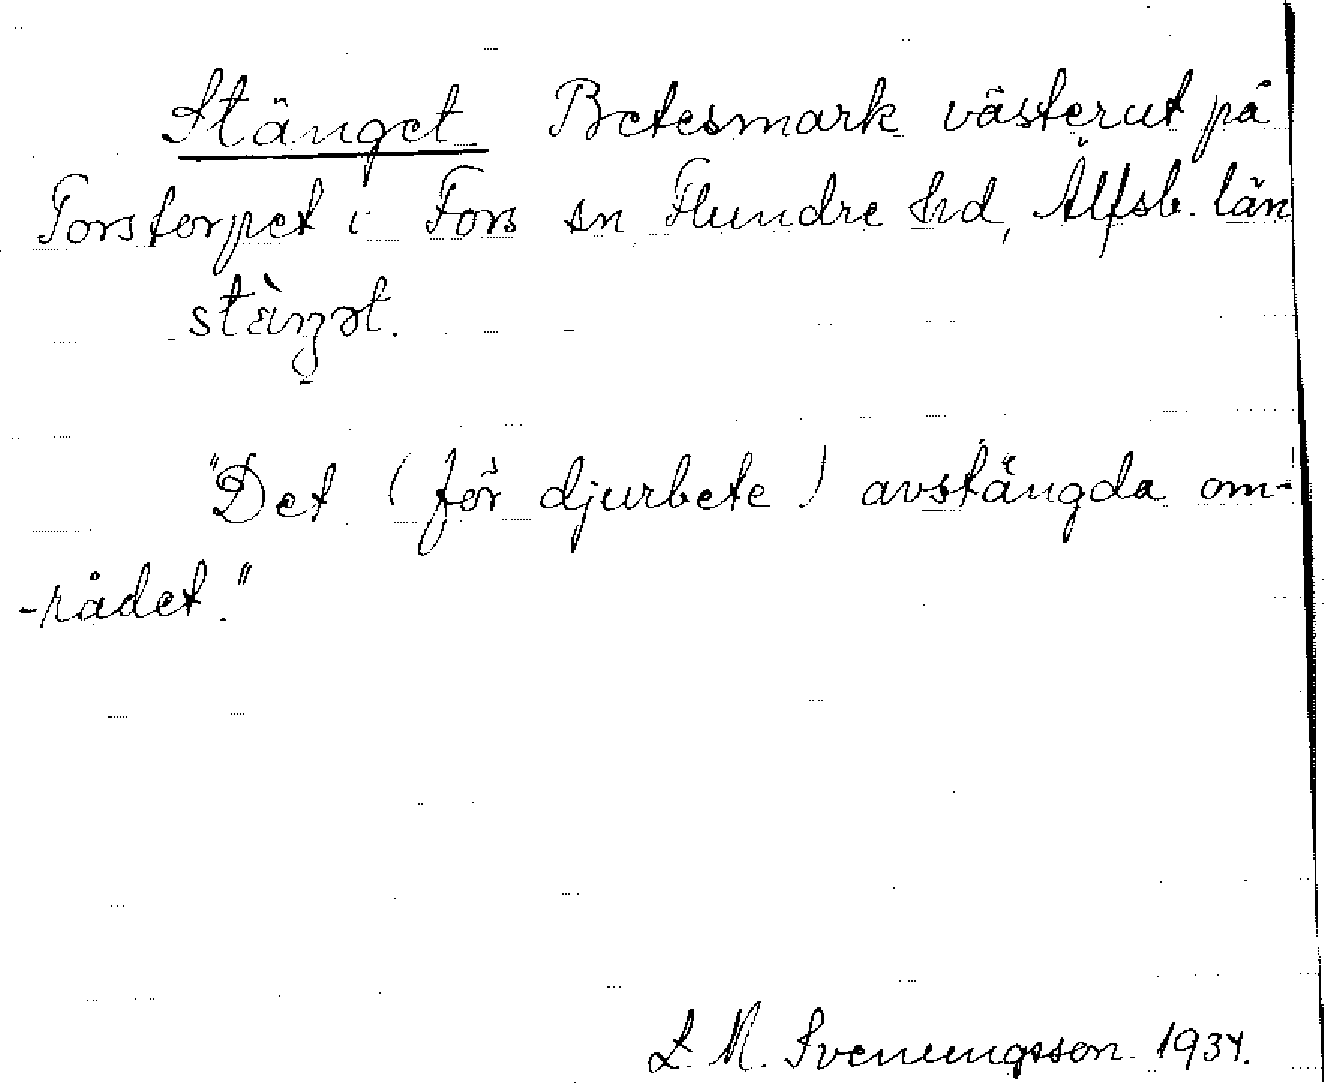 Stänget Betesmark västerut på
Torstorpet i Fors sn Flundre hd, Älfsb. län
stàŋət.
"Det (för djurbete) avstängda om-
-rådet."
L. M. Svenungsson 1934.